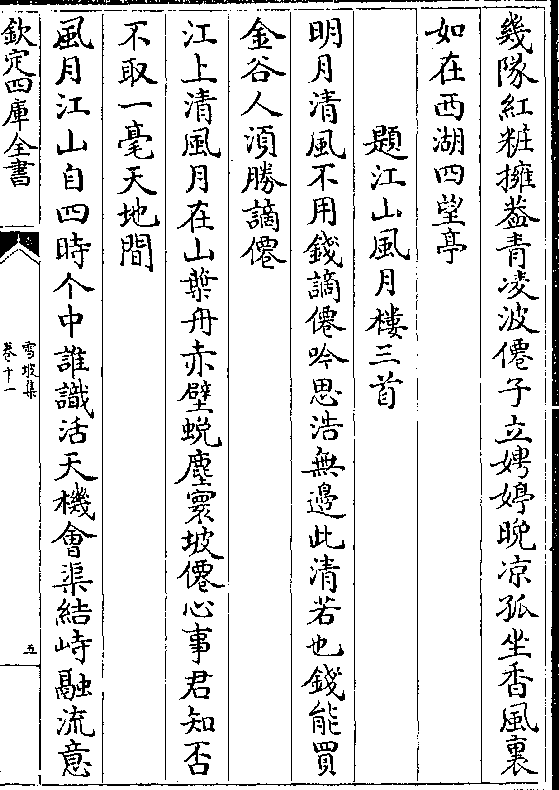 幾隊紅粧擁葢青凌波僊子立娉婷晚凉孤坐香風裏
如在西湖四望亭
題江山風月樓三首
明月清風不用錢謫僊吟思浩無邊此清若也錢能買
金谷人湏勝謫僊
江上清風月在山葉舟赤壁蜕塵寰坡僊心事君知否
不取一毫天地間
風月江山自四時个中誰識活天機會渠結峙融流意
欽定四庫全書
雪坡集
卷十一
五